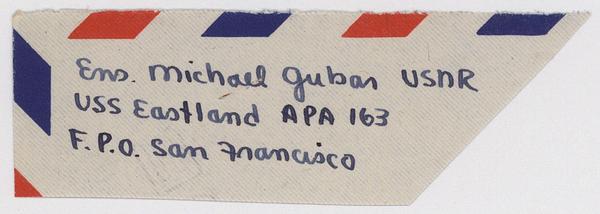 Ens. Michael Guban USNR
USS Eastland APA 163
F.P.O. San Francisco